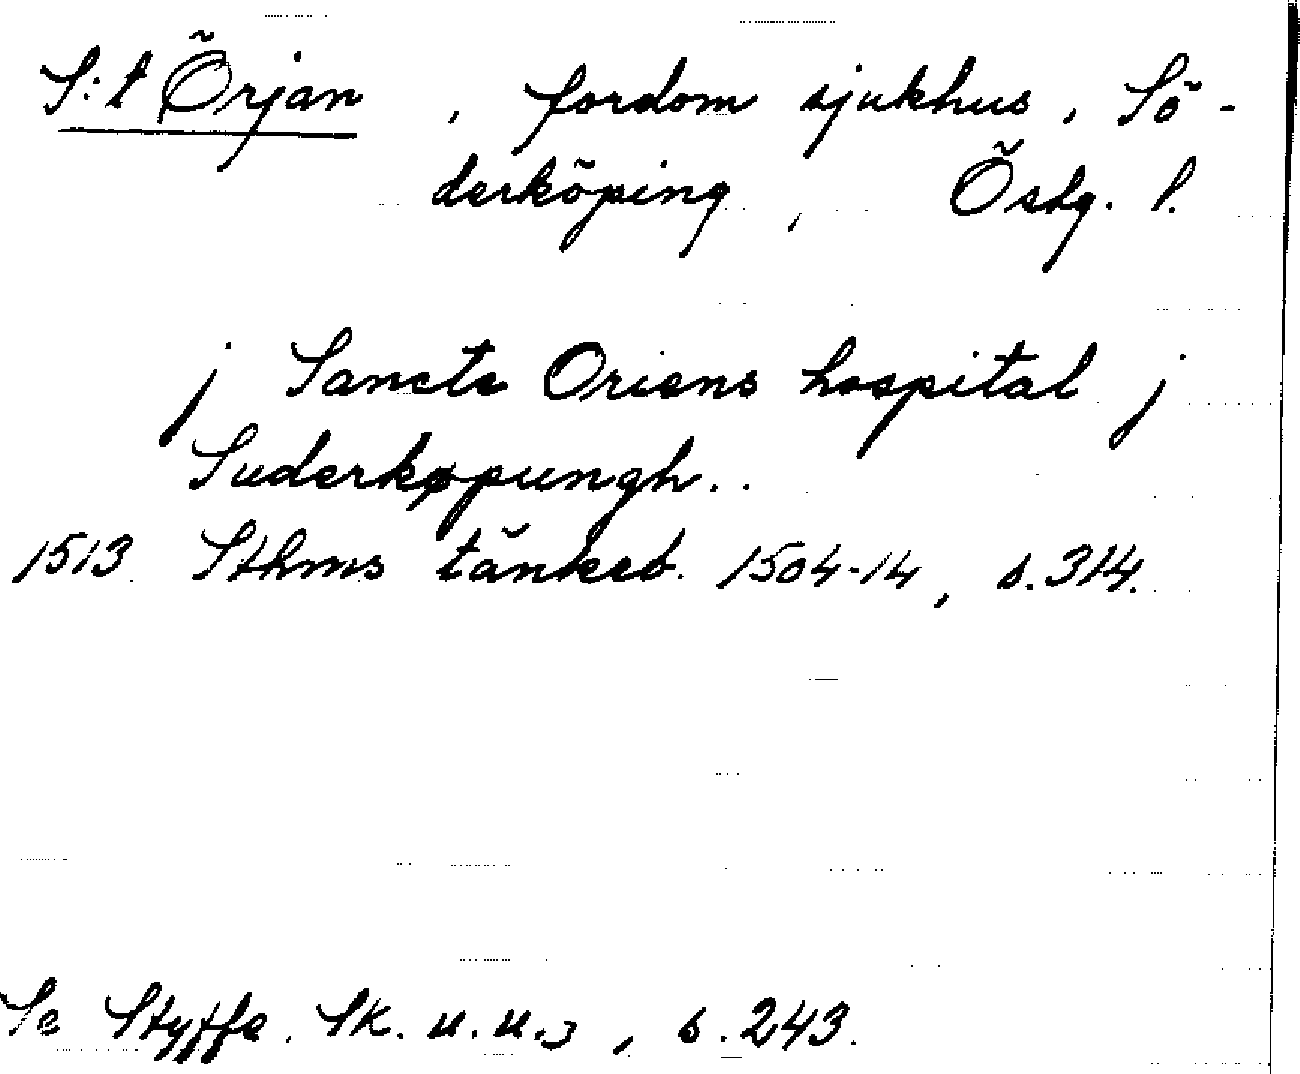 S:t Örjan, fordom sjukhus, Sö-
derköping, Östg. l.
j Sancte Oriens hospital j
Suderkøpungh..
1513 Sthms tänkeb. 1504-14, s. 314.
Se Styffe. Sk. u. u.3, s. 243.